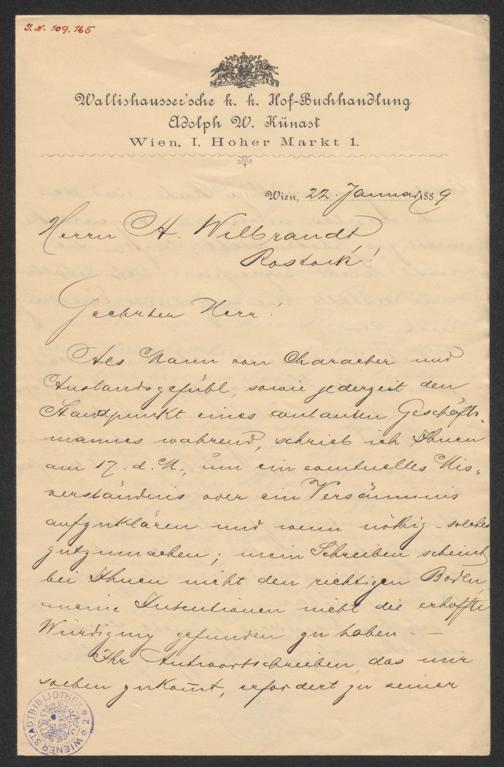 J.N. 109.165
Wallishausser'sche k. k. Hof-Buchhandlung
Adolph W. Künast
Wien, I. Hoher Markt 1.
Wien, 22. Januar 1889
Herrn A. Wilbrandt,
Rostock!
Geehrter Herr!
Als Mann von Character und
Anstandsgefühl, sowie jederzeit den
Standpunkt eines coulanten Geschäfts-
mannes wahrend, schrieb ich Ihnen
am 17. d. M., um ein eventuelles Mis-
verständnis oder ein Versäumnis
aufzuklären und wenn nöthig - solches
gutzumachen; mein Schreiben scheint
bei Ihnen nicht den richtigen Boden
meine Intentionen nicht die erhoffte
Würdigung gefunden zu haben. -
Ihr Antwortschreiben, das mir
soeben zukom̅t, erfordert zu seiner
WIENER STADTBIBLIOTHEK